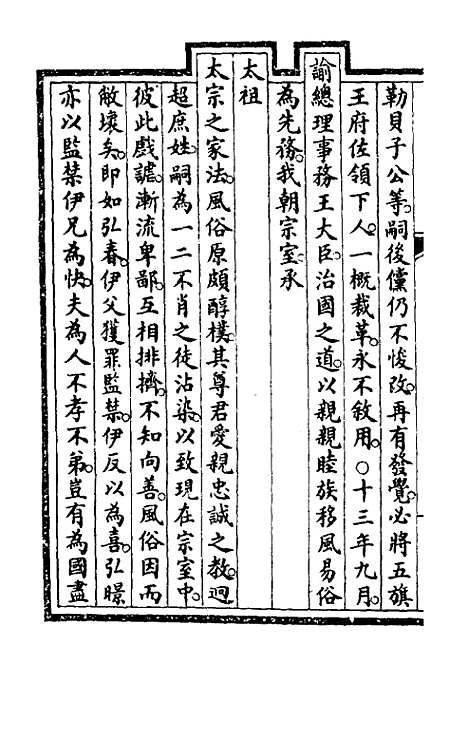 勒貝子公等。嗣後儻仍不悛改。再有發覺。必將五旗
王府佐領下人。一概裁革。永不敘用。○十三年九月。
諭總理事務王大臣。治國之道。以親親睦族移風易俗
為先務。我朝宗室。承
太祖
太宗之家法。風俗原頗醇樸。其尊君愛親忠誠之教。迥
超庶姓。嗣為一二不肖之徒沾染。以致現在宗室中。
彼此戲謔。漸流卑鄙。互相排擠。不知向善。風俗因而
敝壞矣。即如弘春。伊父獲罪監禁。伊反以為喜。弘暻
亦以監禁伊兄為快。夫為人不孝不弟。豈有為國盡